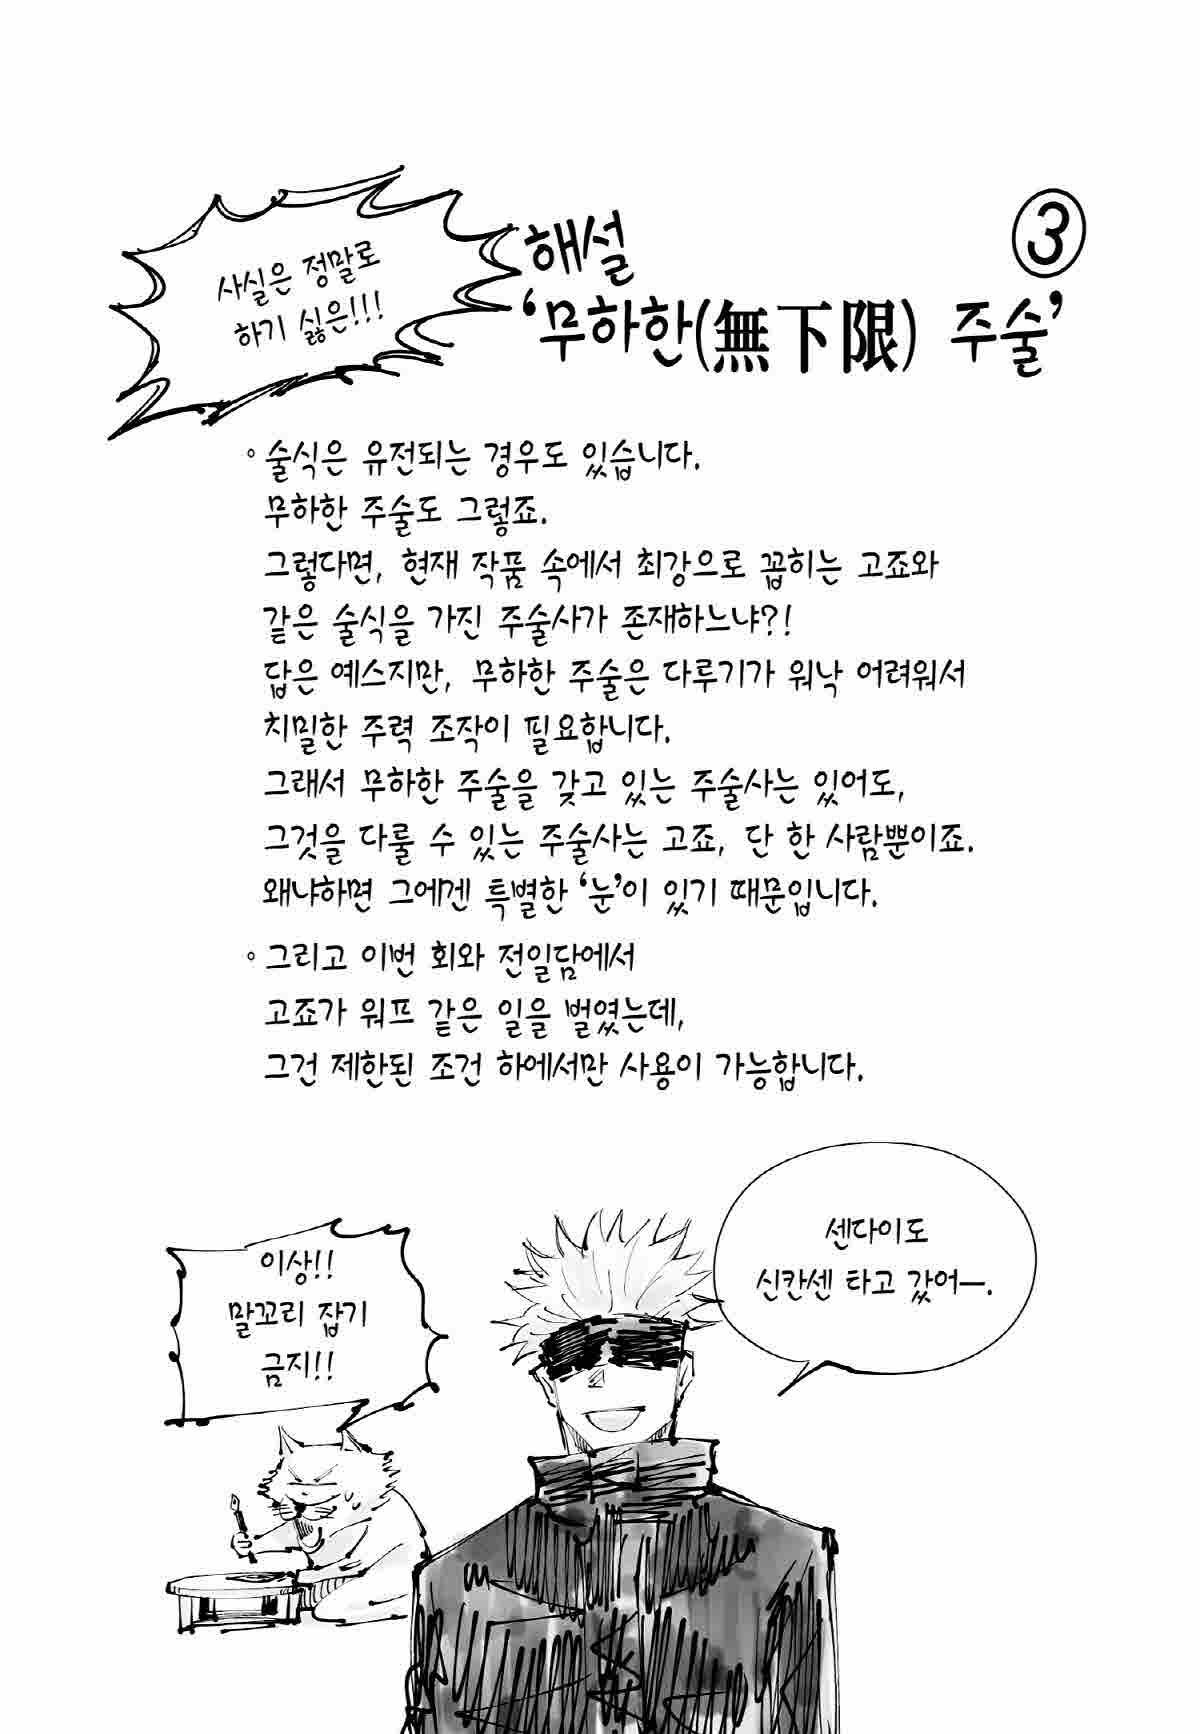 사실은 정말로
하기 싫은!!!
해설
'무하한(無下限) 주술'
③
◦ 술식은 유전되는 경우도 있습니다.
무하한 주술도 그렇죠.
그렇다면, 현재 작품 속에서 최강으로 꼽히는 고죠와
같은 술식을 가진 주술사가 존재하느냐?!
답은 예스지만, 무하한 주술은 다루기가 워낙 어려워서
치밀한 주력 조작이 필요합니다.
그래서 무하한 주술을 갖고 있는 주술사는 있어도,
그것을 다룰 수 있는 주술사는 고죠, 단 한 사람뿐이죠.
왜냐하면 그에겐 특별한 '눈'이 있기 때문입니다.
◦ 그리고 이번 회와 전일담에서
고죠가 워프 같은 일을 벌였는데,
그건 제한된 조건 하에서만 사용이 가능합니다.
센다이도
신칸센 타고 갔어―.
이상!!
말꼬리 잡기
금지!!